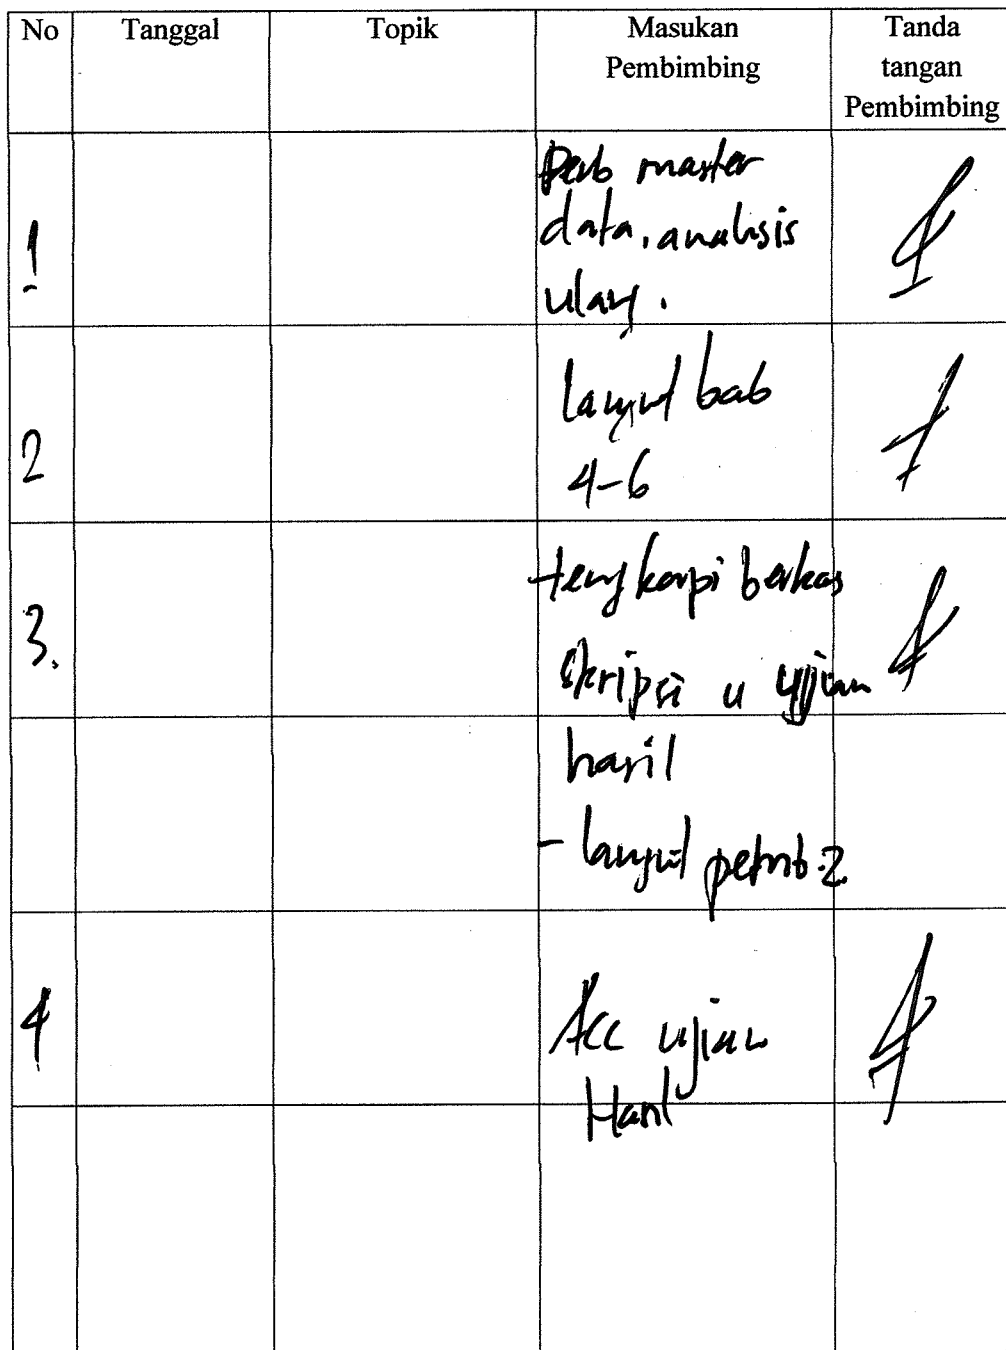 No Tanggal Topik Masukan Pembimbing Tanda tangan Pembimbing
1 Perb master
data, analisis
ulang.
2 lanjut bab
4-6
3. lengkapi berkas
skripsi u ujian
hasil
- lanjut pemb.2
4 Acc ujian
Hasil